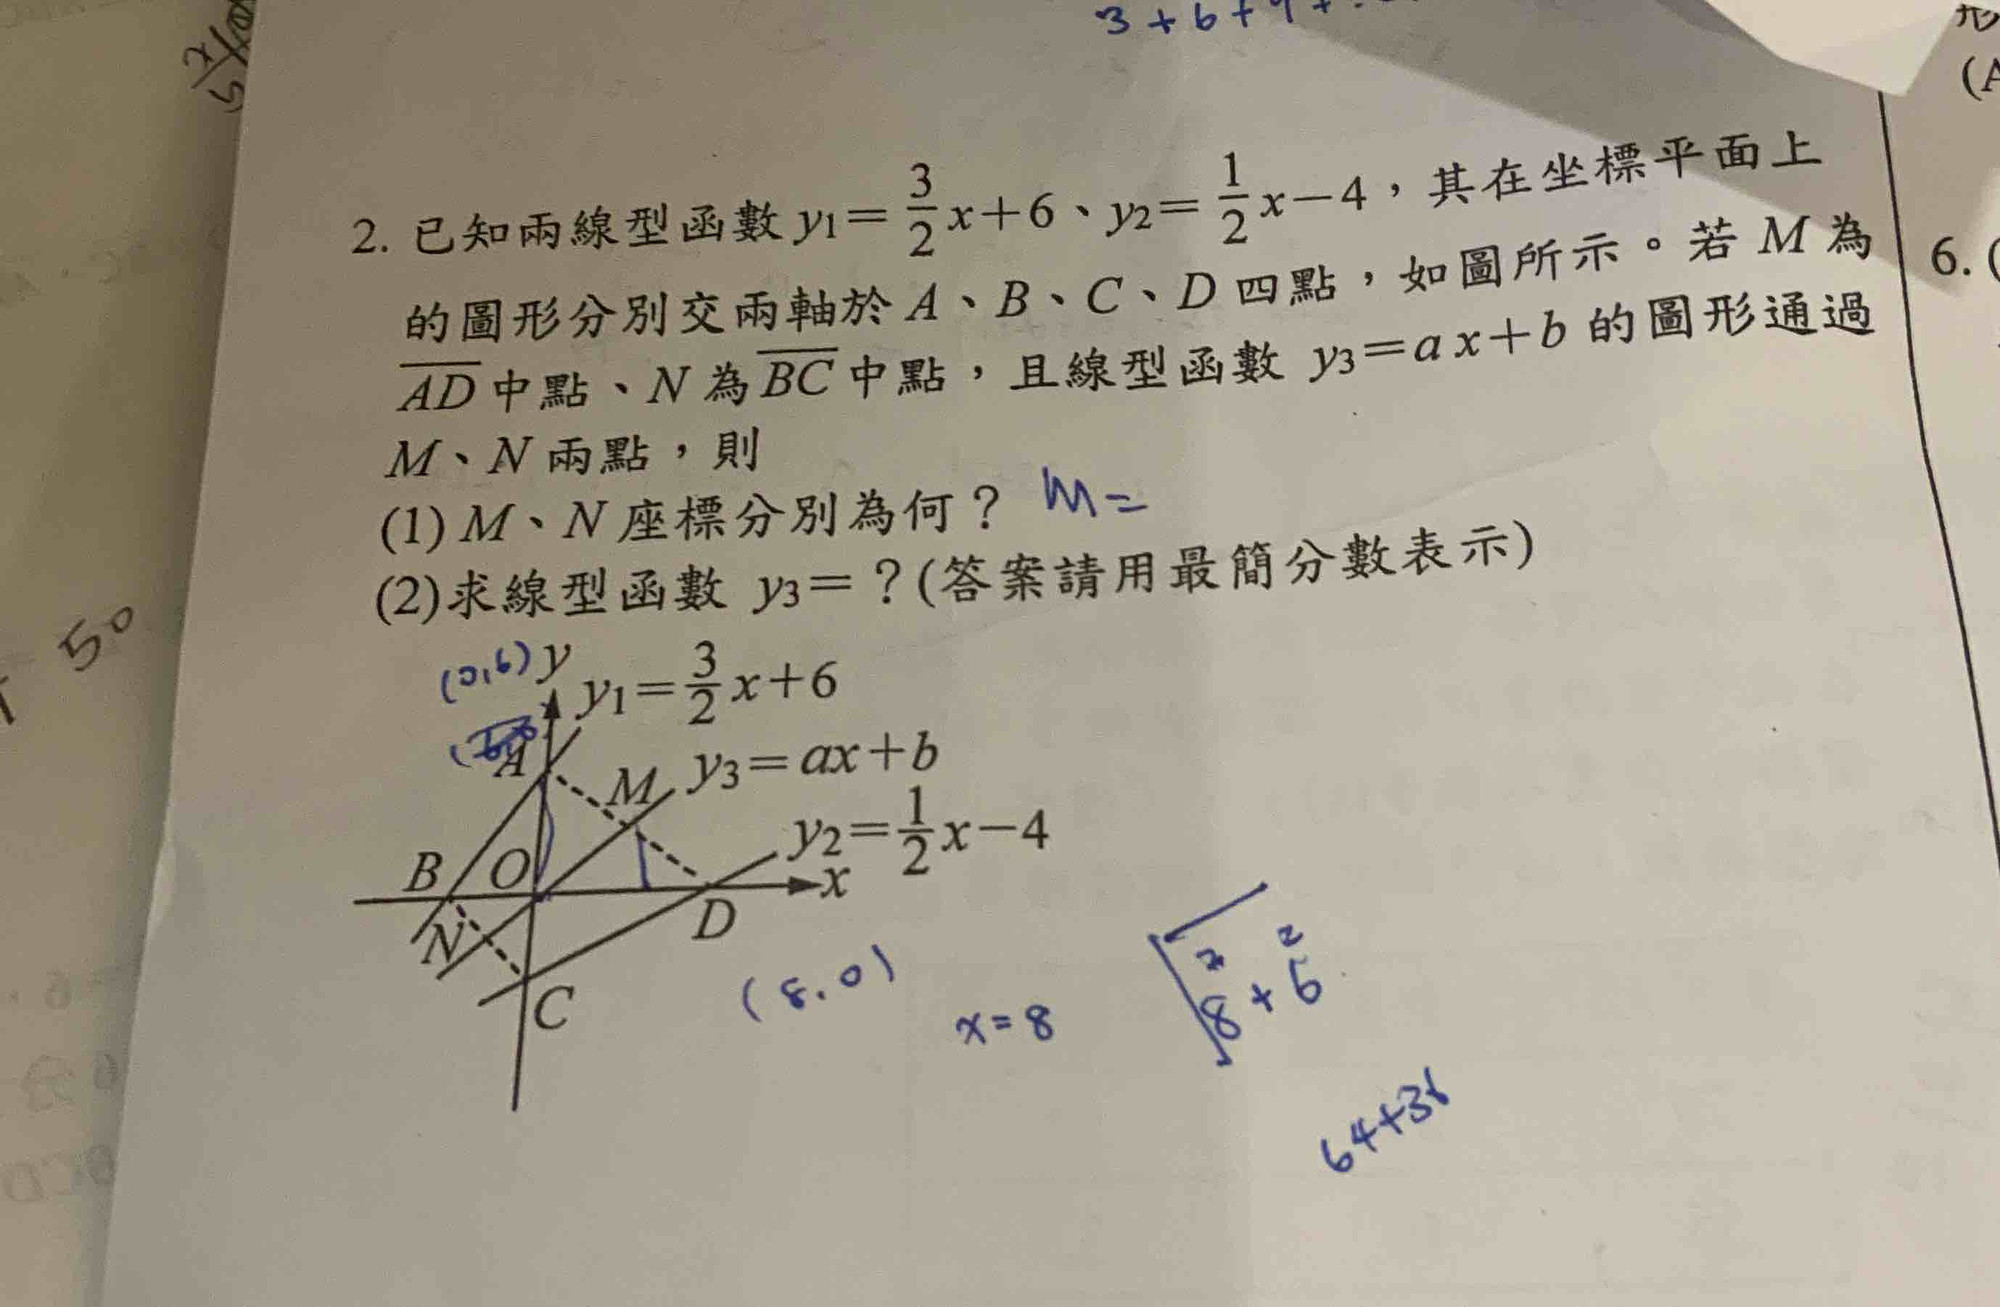 3+6+9+
2. 已知兩線型函數 y₁=3/2x+6、y₂=1/2x-4，其在坐標平面上
的圖形分別交兩軸於 A、B、C、D 四點，如圖所示。若 M 為
AD 中點、N 為 BC 中點，且線型函數 y₃=ax+b 的圖形通過
M、N 兩點，則
(1) M、N 座標分別為何？ M=
(2)求線型函數 y₃=？(答案請用最簡分數表示)
(0,6) y y₁=3/2x+6
A M y₃=ax+b
y₂=1/2x-4
B O x
N D
C
(8,0)
x=8
√8²+6²
64+36
50
6.
形
(A